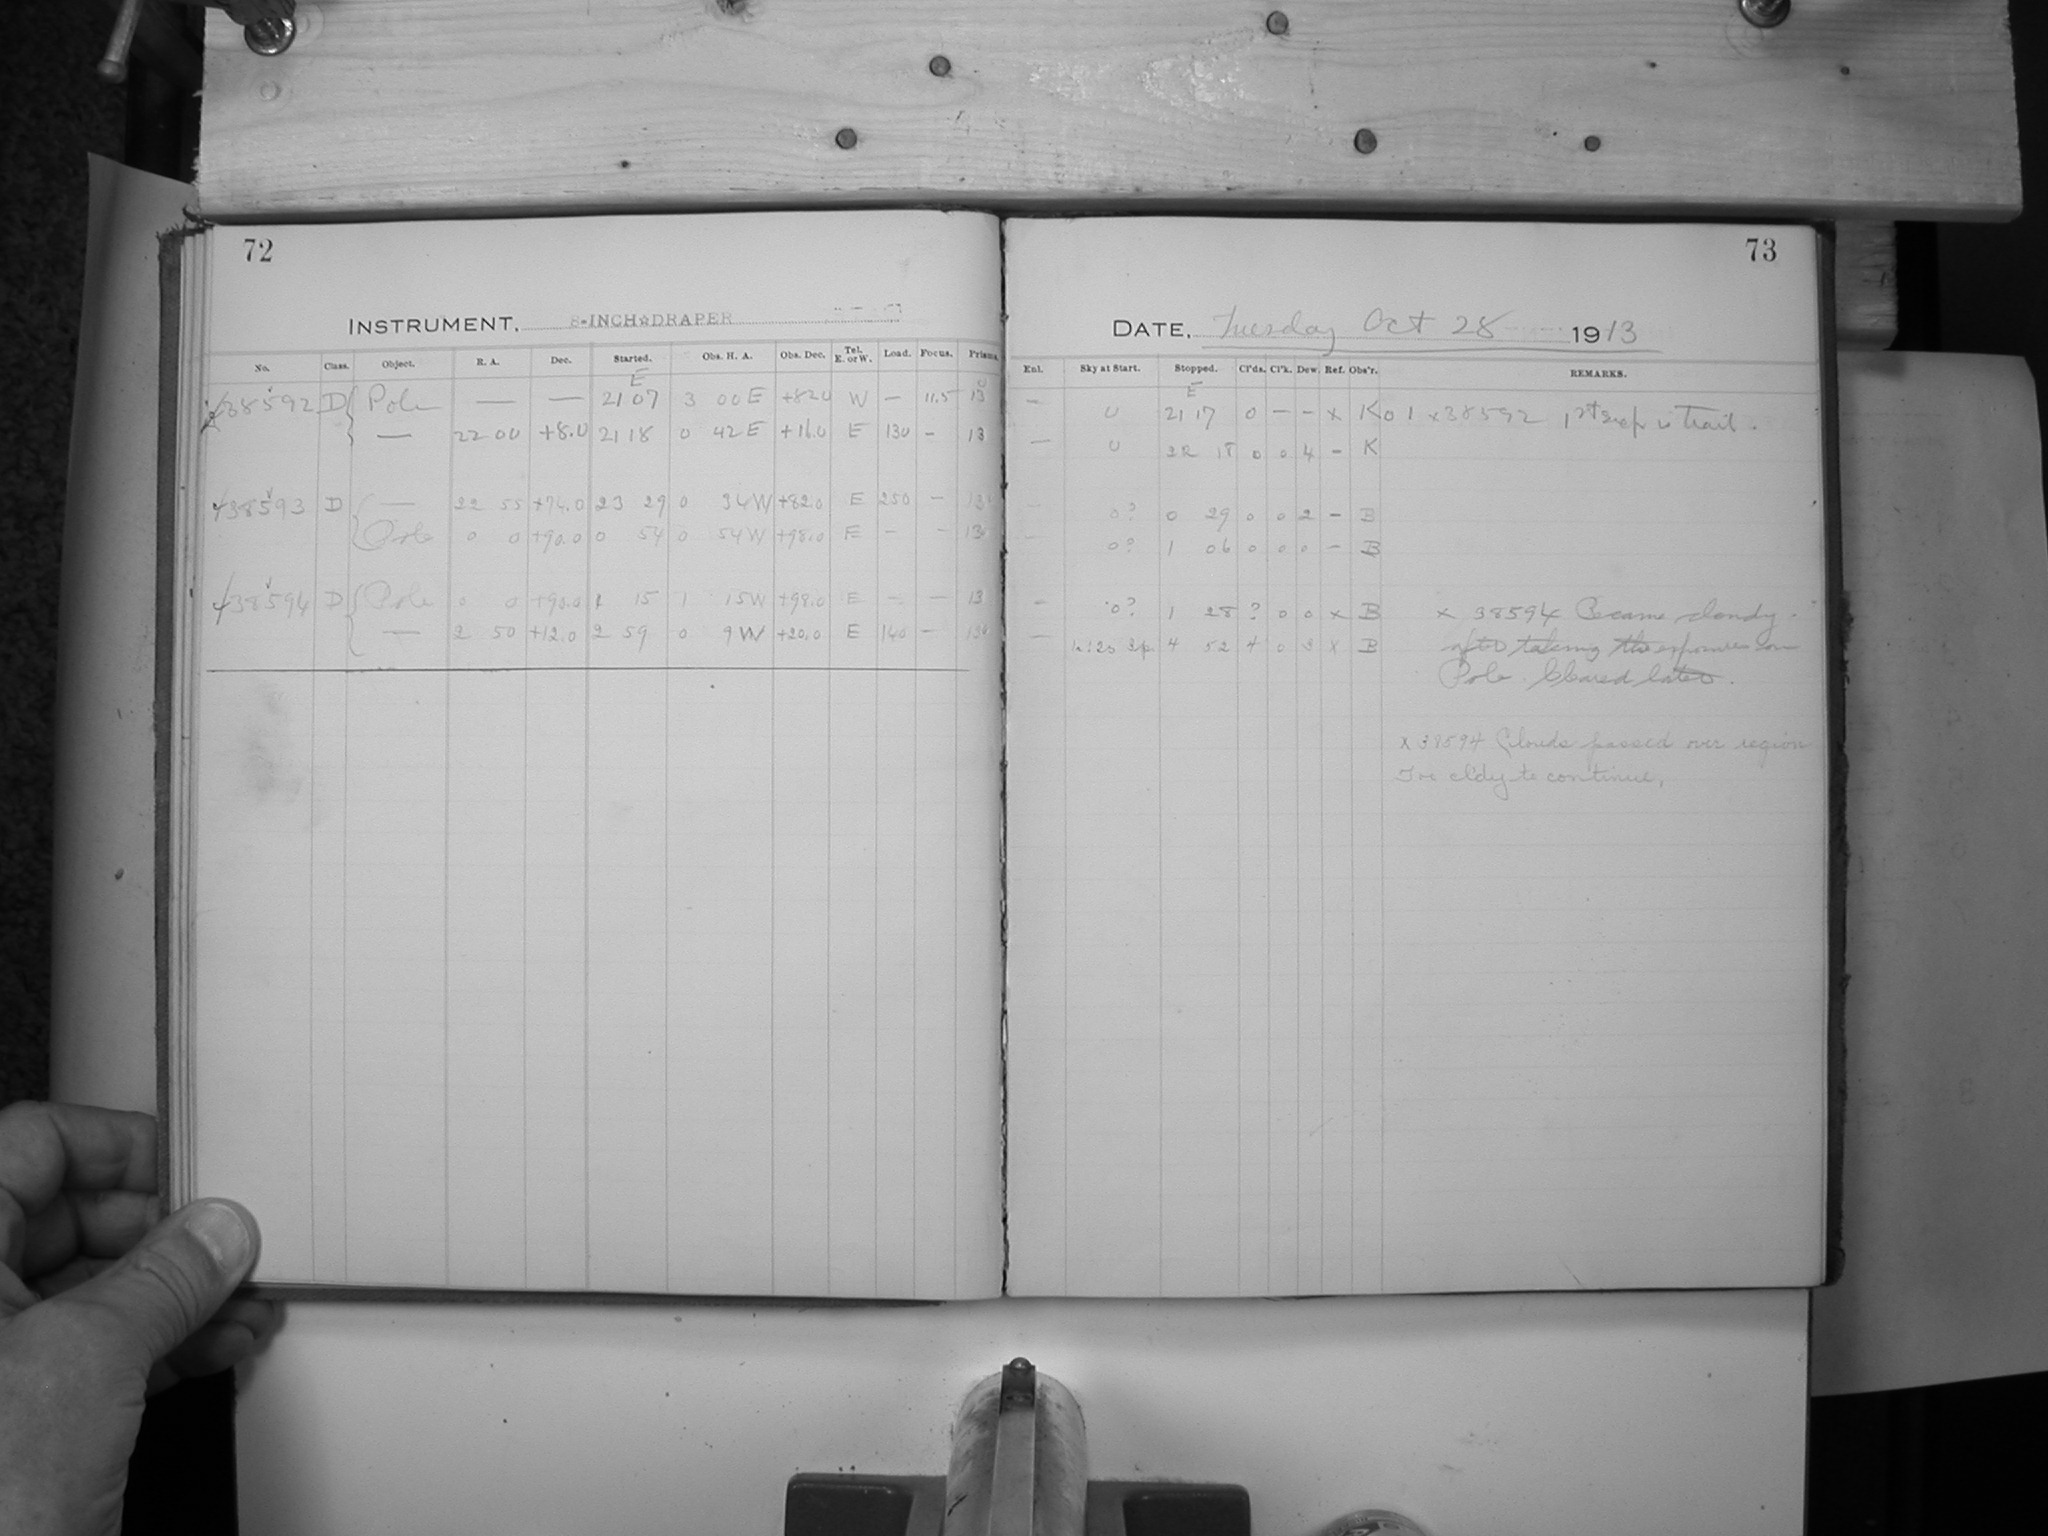 72
INSTRUMENT, 8-INCH☆DRAPER
No. Class. Object. R. A. Dec. Started. Obs. H. A. Obs. Dec. Tel. E. or W. Load. Focus. Prisms.
E
38592 D Pole — — 21 07 3 00 E +82.0 W — 11.5 13
— 22 00 +8.0 21 18 0 42 E +16.0 E 130 - 13
38593 D — 22 55 +74.0 23 29 0 34 W +82.0 E 250 - 13
Pole 0 0 +90.0 0 54 0 54 W +98.0 E - - 13
38594 D Pole 0 0 +90.0 1 15 1 15 W +98.0 E - - 13
— 2 50 +12.0 2 59 0 9 W +20.0 E 140 - 13
73
DATE, Tuesday Oct 28 1913
Enl. Sky at Start. Stopped. Cl'ds. Cl'k. Dew. Ref. Obs'r. REMARKS.
E
— 0 21 17 0 — — x K 0 1 x 38592 1st exp is trail.
— 0 22 18 0 0 4 - K
- 0? 0 29 0 0 2 - B
- 0? 1 06 0 0 0 - B
- 0? 1 28 ? 0 0 x B x 38594 Became cloudy
— 4 52 4 0 3 x B after taking the exposure on
Pole. Cleared later.
x 38594 Clouds passed over region
Too cldy to continue.